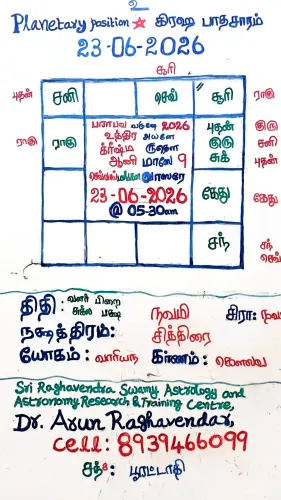 2
Planetary position ★ கிரஹ பாதசாரம்
23-06-2026
சூரி
புதன் சனி செவ் சூரி ராகு
பராபவ வருஷ 2026
உத்திர அயனே
க்ரீஷ்ம ருதௌ
ஆனி மாஸே 9
வாஸரே
23-06-2026
@ 05-30am
ராகு ராகு
புதன்
குரு
சுக்
குரு
சனி
புதன்
கேது கேது
சந் சந்
செவ்
திதி: வளர் பிறை நவமி
சுக்ல பக்ஷ
நக்ஷத்திரம்: சித்திரை
யோகம்: வாரியந கரணம்: கௌலவ
Sri Raghavendra Swamy Astrology and
Astronomy Research & Training Centre,
Dr. Arun Raghavendar,
cell: 8939466099
பூரட்டாதி